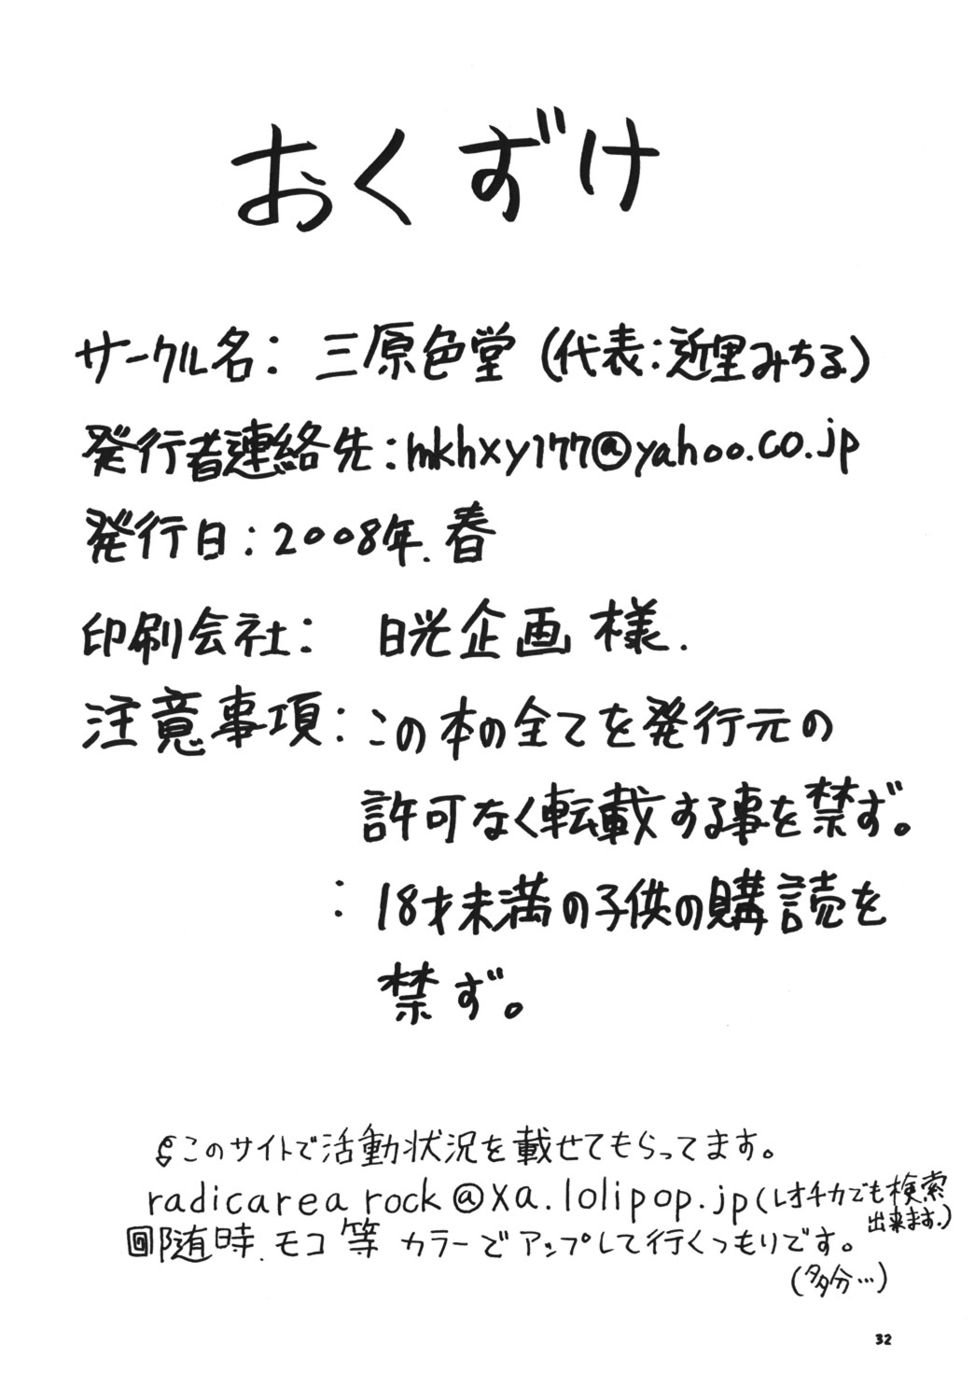 おくずけ
サークル名：三原色堂（代表：近里みちる）
発行者連絡先：mkhxy177@yahoo.co.jp
発行日：2008年.春
印刷会社：日光企画 様.
注意事項：この本の全てを発行元の
許可なく転載する事を禁ず。
：18才未満の子供の購読を
禁ず。
このサイトで活動状況を載せてもらってます。
radicarea rock@xa.lolipop.jp（レオチカでも検索
出来ます。）
回随時、モコ等 カラーでアップして行くつもりです。
（多分…）
32